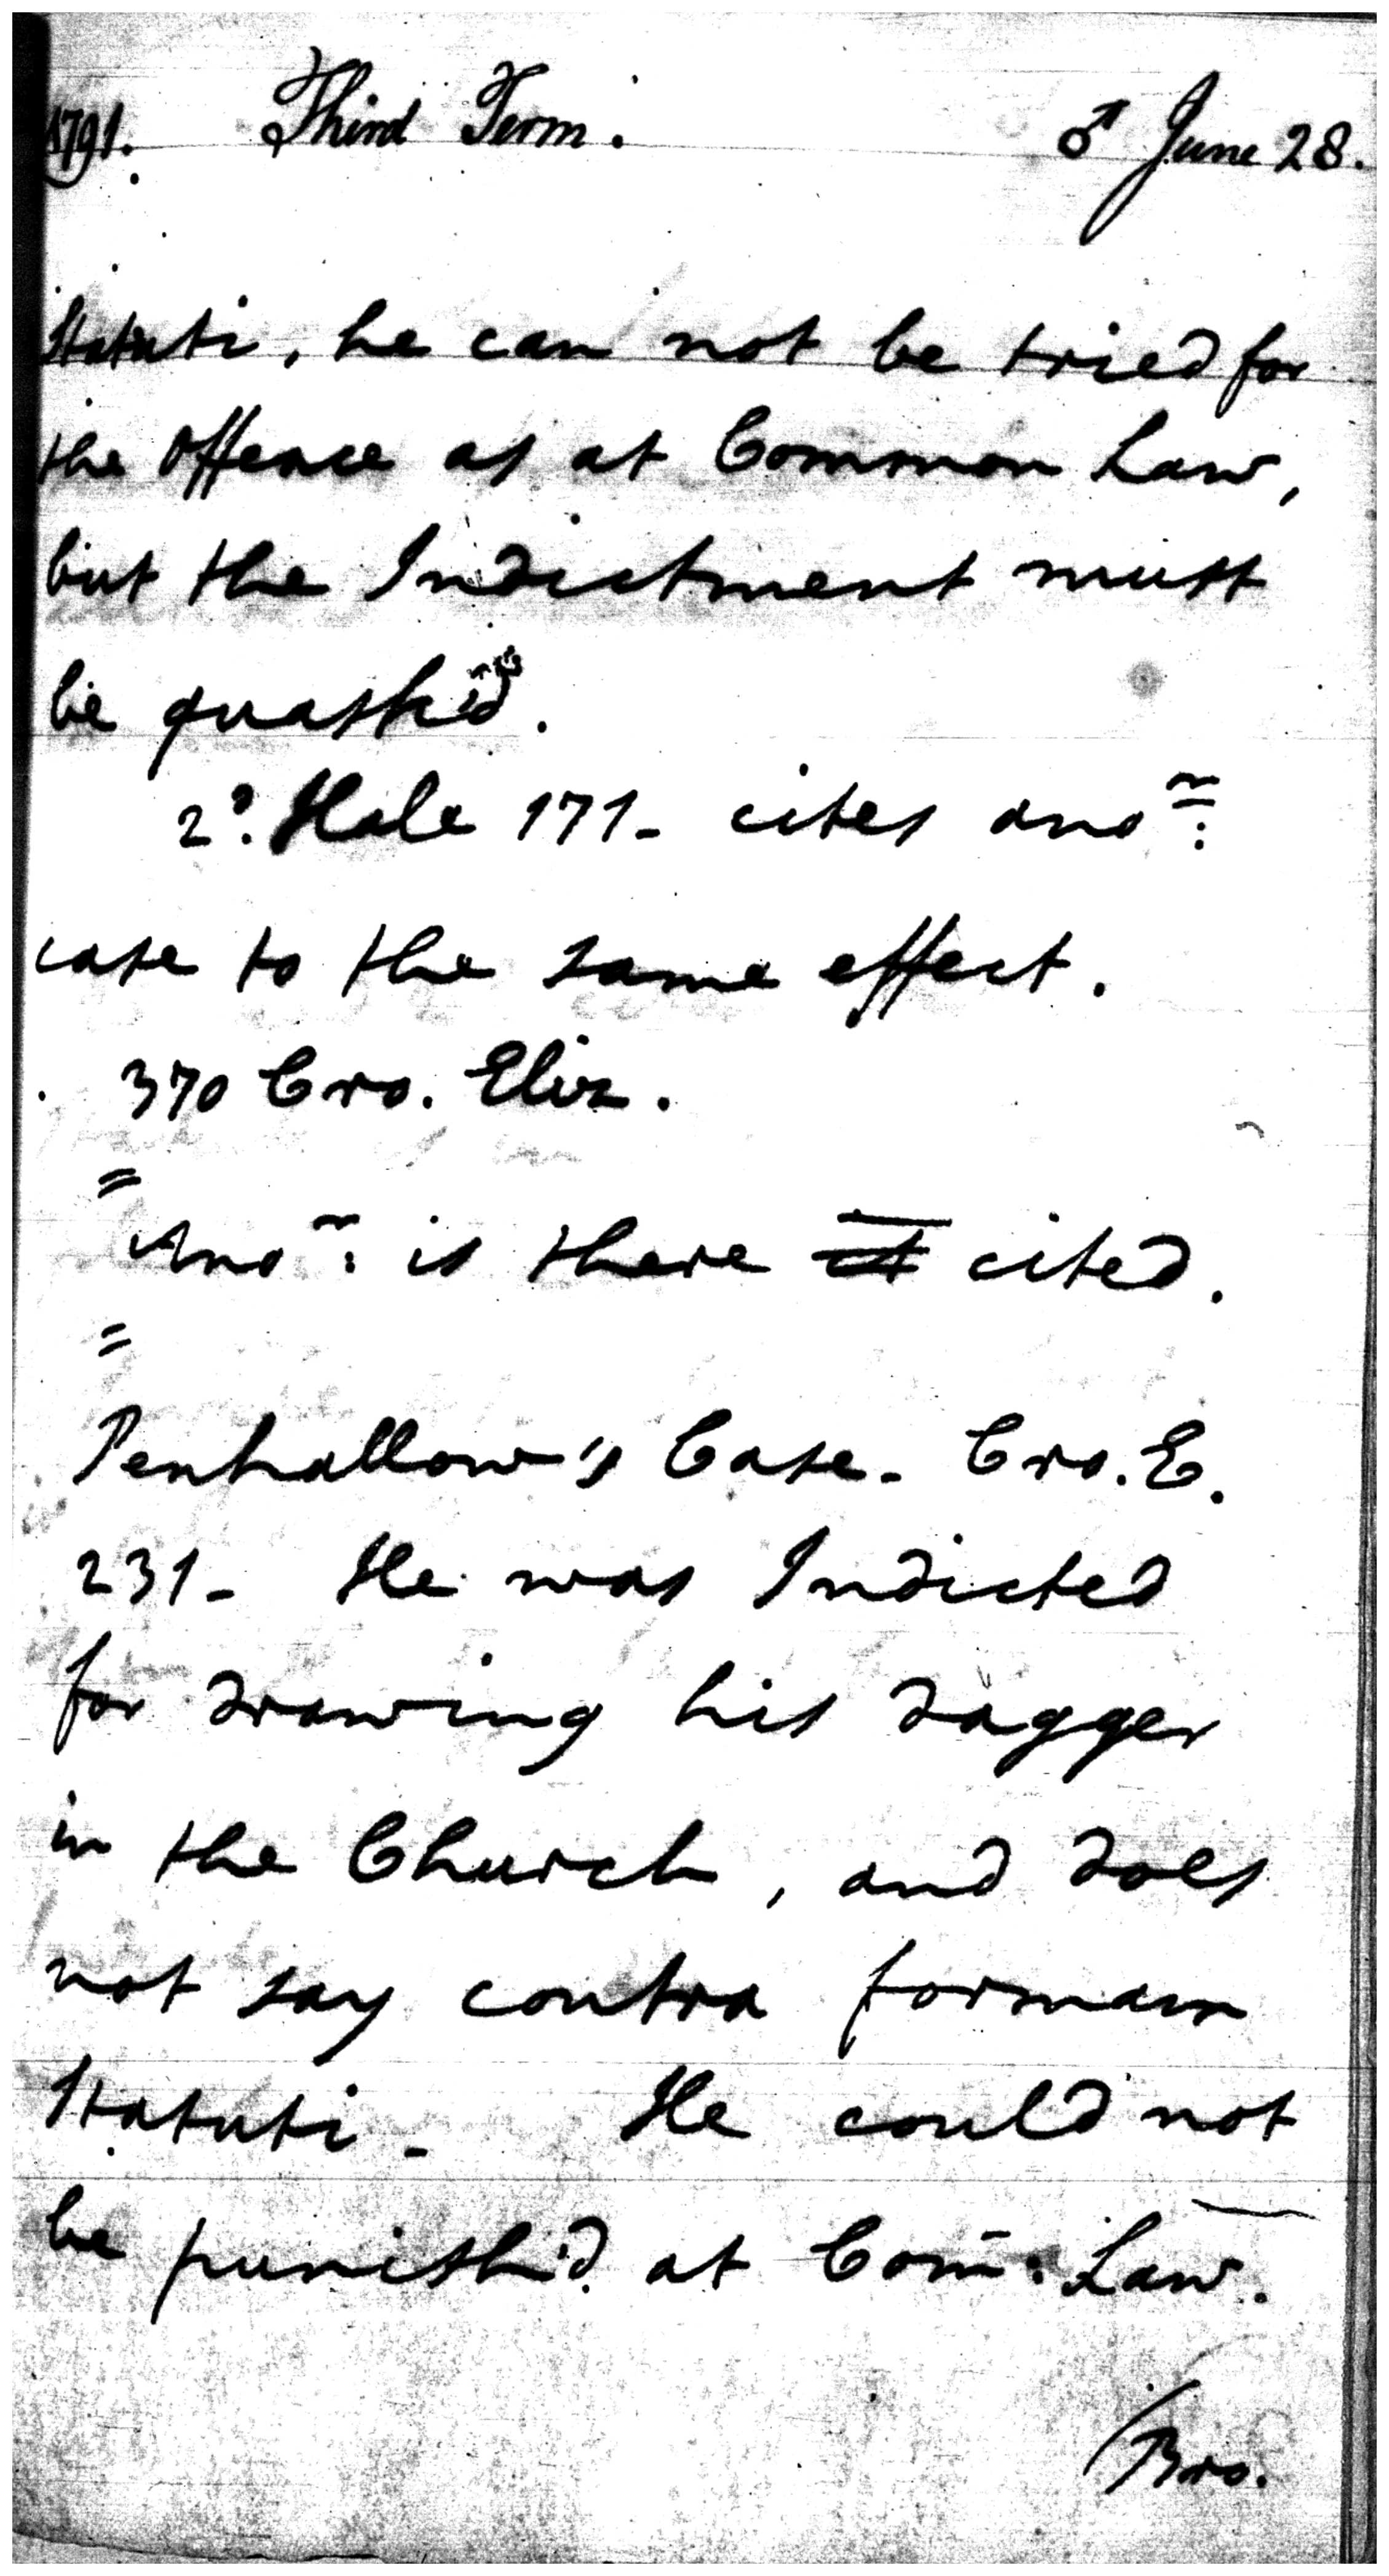 1791. Third Term. ♂ June 28.
Statuti, he can not be tried for
the Offence as at Common Law,
but the Indictment must
be quash'd.
2d. Hale 171 - cites anor:
case to the same effect.
370 Cro. Eliz.
=
Anor: is there it cited.
=
Penhallow's Case - Cro. E.
231 - He was Indicted
for drawing his dagger
in the Church, and does
not say contra formam
Statuti - He could not
be punish'd at Com: Law.
Bro.